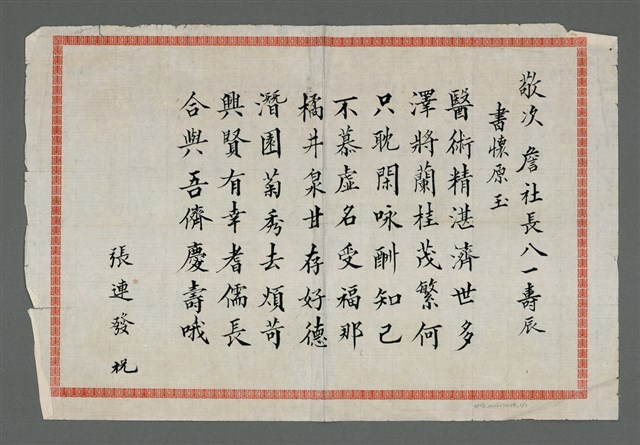 敬次 詹社長八一壽辰
書懷原玉
醫術精湛濟世多
澤將蘭桂茂繁何
只耽閑咏酬知己
不慕虛名受福那
橘井泉甘存好德
潛園菊秀去煩苛
興賢有幸耆儒長
合與吾儕慶壽哦
張連發 祝